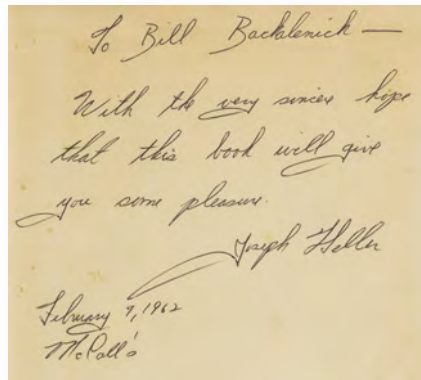 To Bill Backalenick —
With the very sincere hope
that this book will give
you some pleasure.
Joseph Heller
February 9, 1962
McCall's